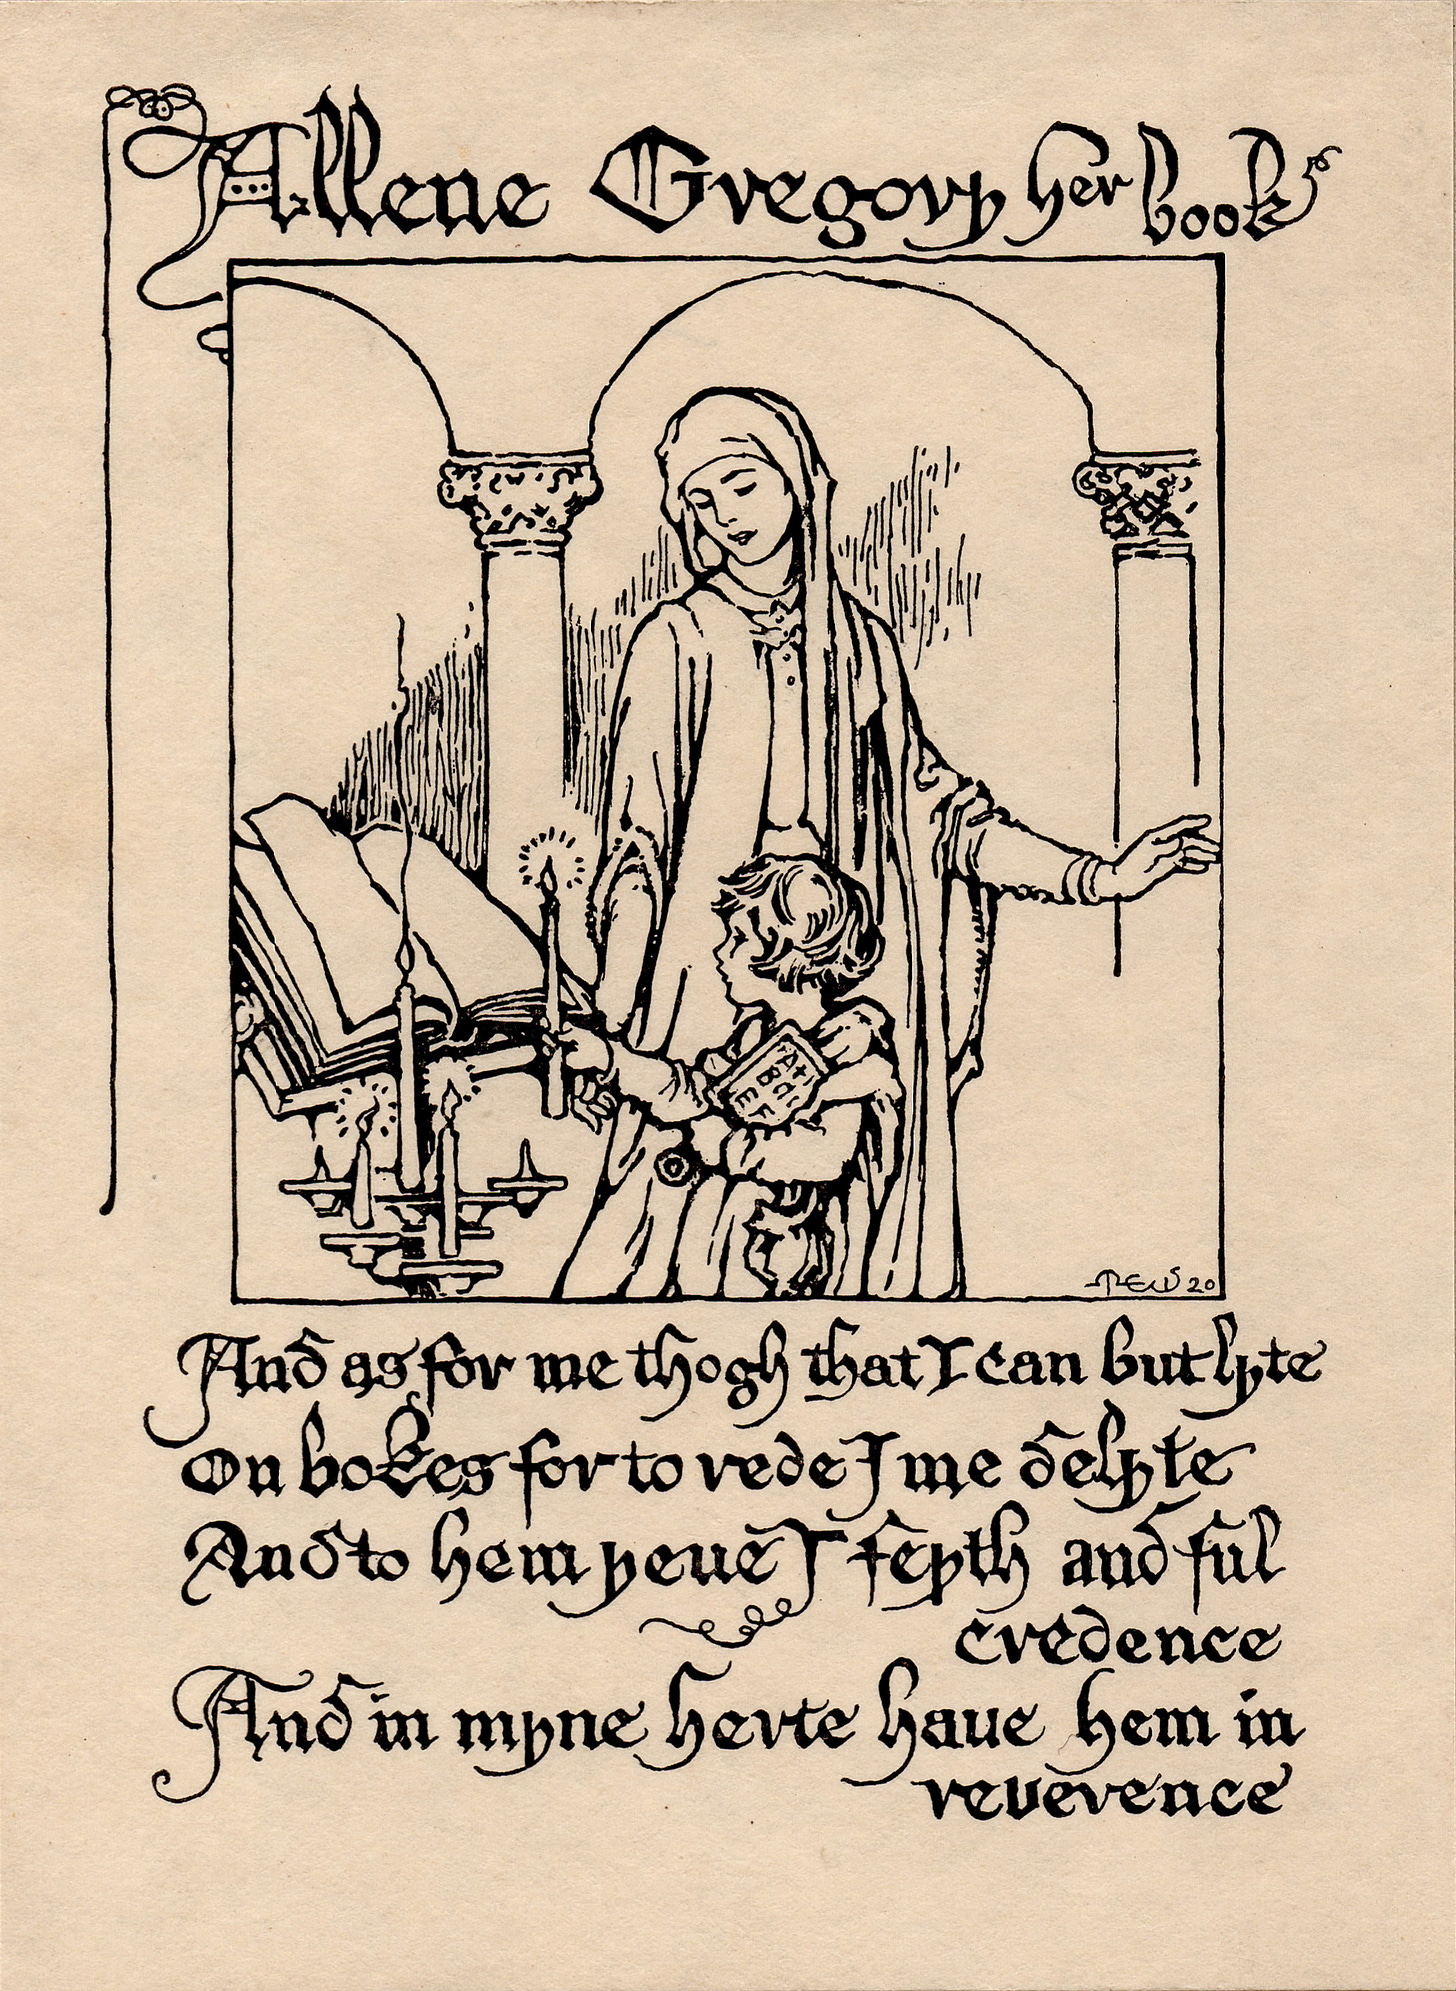 Allene Gregory her book
A+
BaC
EF
20
And as for me thogh that I can but lyte
On bokes for to rede I me delyte
And to hem yeue I feyth and ful
credence
And in myne herte haue hem in
reuerence